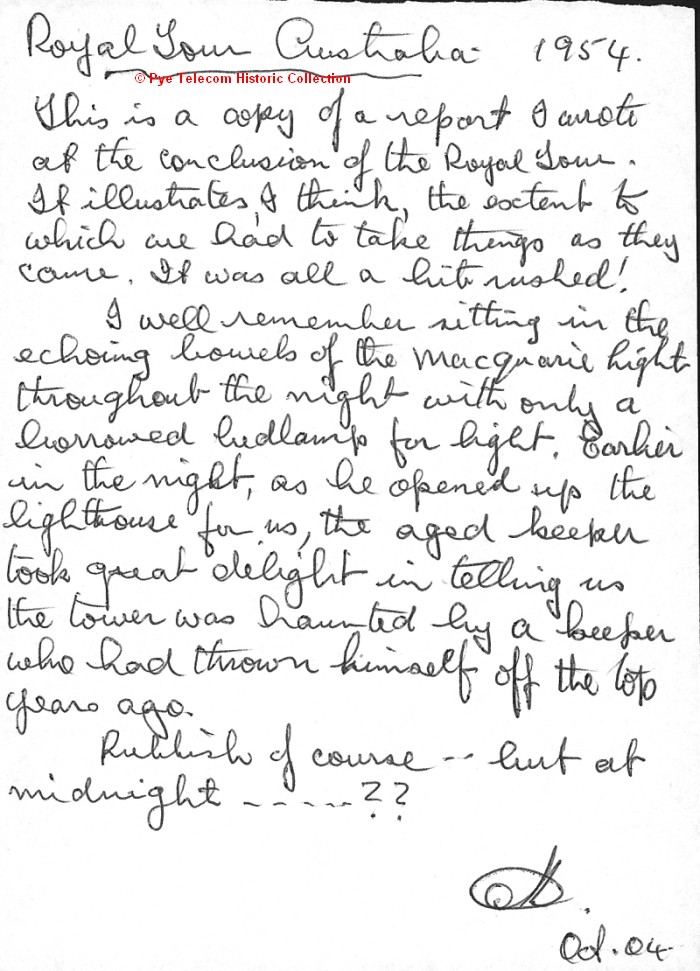 Royal Tour Australia 1954.
© Pye Telecom Historic Collection
This is a copy of a report I wrote
at the conclusion of the Royal Tour.
It illustrates, I think, the extent to
which we had to take things as they
came. It was all a bit rushed!
I well remember sitting in the
echoing bowels of the Macquarie light
throughout the night with only a
borrowed bedlamp for light. Earlier
in the night, as he opened up the
lighthouse for us, the aged keeper
took great delight in telling us
the tower was haunted by a keeper
who had thrown himself off the top
years ago.
Rubbish of course -- but at
midnight -----??
Oct. 04